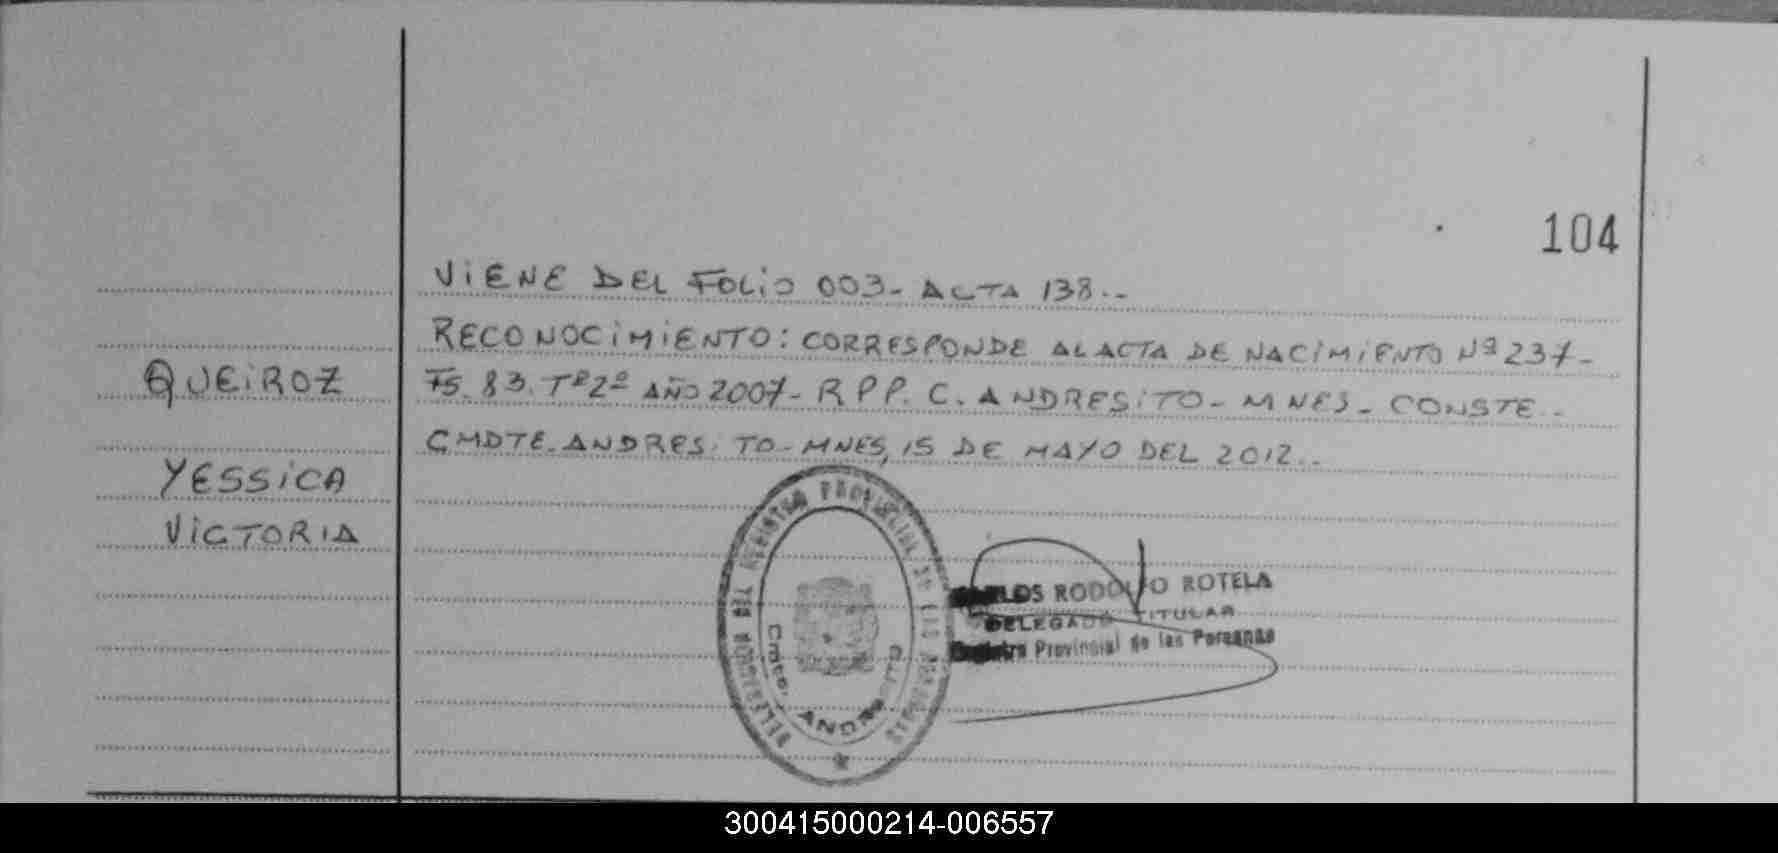 104
VIENE DEL FOLIO 003- ACTA 138.-
RECONOCIMIENTO: CORRESPONDE AL ACTA DE NACIMIENTO Nº 237-
QUEIROZ
Fs. 83. Tº2º AÑO 2007- R P P. C. ANDRESITO- MNES- CONSTE.-
CMDTE. ANDRESITO- MNES, 15 DE MAYO DEL 2012.-
YESSICA
VICTORIA
REGISTRO PROVINCIAL DE LAS PERSONAS
CMDTE. ANDRESITO
CARLOS RODOLFO ROTELA
DELEGADO TITULAR
Registro Provincial de las Personas
300415000214-006557